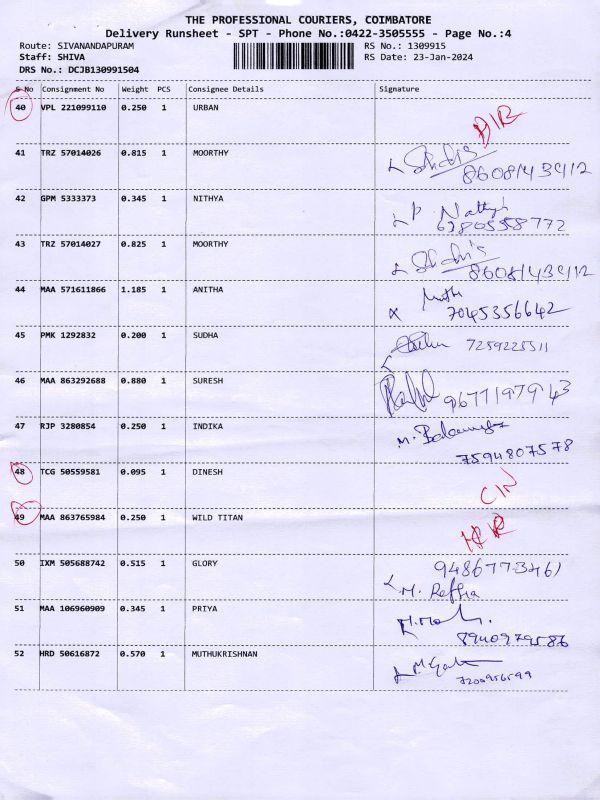 THE PROFESSIONAL COURIERS, COIMBATORE
Delivery Runsheet - SPT - Phone No.:0422-3505555 - Page No.:4
Route: SIVANANDAPURAM RS No.: 1309915
Staff: SHIVA RS Date: 23-Jan-2024
DRS No.: DCJB130991504
S No Consignment No Weight PCS Consignee Details Signature
40 VPL 221099110 0.250 1 URBAN
41 TRZ 57014026 0.815 1 MOORTHY
8608143412
42 GPM 5333373 0.345 1 NITHYA
43 TRZ 57014027 0.825 1 MOORTHY
8608143412
44 MAA 571611866 1.185 1 ANITHA
7045356642
45 PMK 1292832 0.200 1 SUDHA 7259225511
46 MAA 863292688 0.880 1 SURESH 9677197943
47 RJP 3280854 0.250 1 INDIKA
7594807578
48 TCG 50559581 0.095 1 DINESH
49 MAA 863765984 0.250 1 WILD TITAN
50 IXM 505688742 0.515 1 GLORY 9486773461
51 MAA 106960909 0.345 1 PRIYA
8940979586
52 HRD 50616872 0.570 1 MUTHUKRISHNAN
7200956599